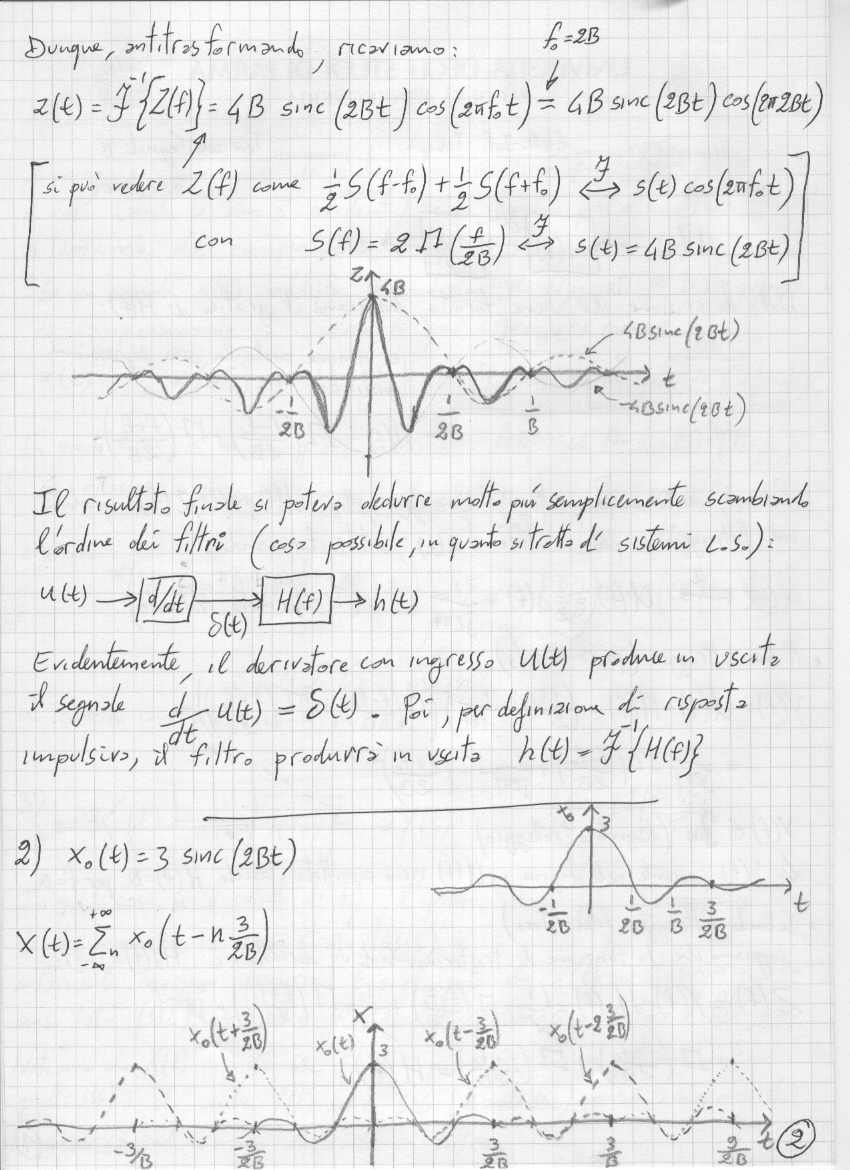 Dunque, antitrasformando, ricaviamo:
f₀=2B
z(t) = ℱ⁻¹{Z(f)} = 4B sinc(2Bt) cos(2πf₀t) = 4B sinc(2Bt) cos(2π2Bt)
[si può vedere Z(f) come 1/2 S(f-f₀) + 1/2 S(f+f₀) ⟷ℱ s(t) cos(2πf₀t)
con S(f) = 2 Π(f/2B) ⟷ℱ s(t) = 4B sinc(2Bt)]
z
4B
4B sinc(2Bt)
t
-4B sinc(2Bt)
-1/2B 1/2B 1/B
Il risultato finale si poteva dedurre molto più semplicemente scambiando
l'ordine dei filtri (cosa possibile, in quanto si tratta di sistemi L.S.):
u(t) → d/dt → H(f) → h(t)
δ(t)
Evidentemente, il derivatore con ingresso u(t) produce in uscita
il segnale d/dt u(t) = δ(t). Poi, per definizione di risposta
impulsiva, il filtro produrrà in uscita h(t) = ℱ⁻¹{H(f)}
2) x₀(t) = 3 sinc(2Bt)
x₀
3
-1/2B 1/2B 1/B 3/2B t
X(t) = Σₙ -∞ +∞ x₀(t - n 3/2B)
x₀(t+3/2B) x₀(t) X 3 x₀(t-3/2B) x₀(t-2 3/2B)
-3/B -3/2B 3/2B 3/B 9/2B t
2